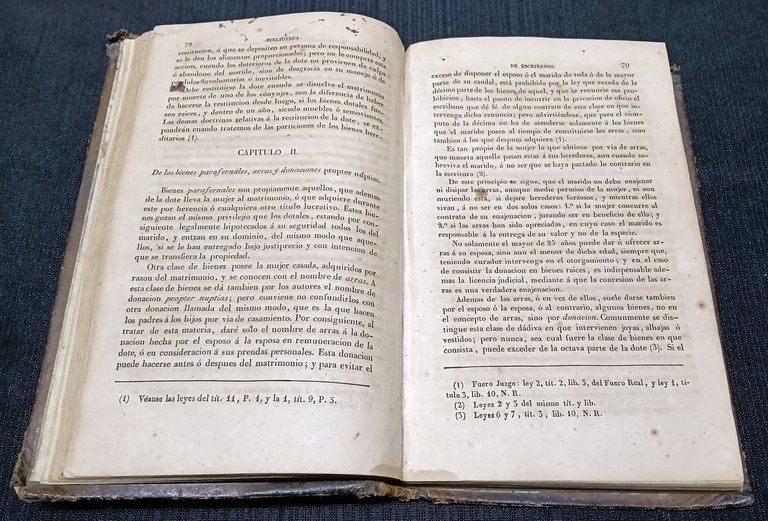 78
BIBLIOTECA
restitucion, ó que se depositen en persona de responsabilidad, y
se le den los alimentos proporcionados; pero no le compete esta
accion, cuando los deterioros de la dote no provienen de culpa
ó abandono del marido, sino de desgracia en su manejo ó de
pérdidas involuntarias ó inevitables.
Debe restituirse la dote cuando se disuelve el matrimonio
por muerte de uno de los cónyujes, con la diferencia de haber
de hacerse la restitucion desde luego, si los bienes dotales fue-
sen raices, y dentro de un año, siendo muebles ó semovientes.
Las demas doctrinas relativas á la restitucion de la dote, se ex-
pondrán cuando tratemos de las particiones de los bienes here-
ditarios (1).
CAPITULO II.
De los bienes parafernáles, arras y donaciones propter nuptias.
Bienes parafernales son propiamente aquellos, que ademas
de la dote lleva la mujer al matrimonio, ó que adquiere durante
este por herencia ó cualquiera otro titulo lucrativo. Estos bie-
nes gozan el mismo privilejio que los dotales, estando por con-
siguiente legalmente hipotecados á su seguridad todos los del
marido, y entran en su dominio, del mismo modo que aque-
llos, si se le han entregado bajo justiprecio y con intencion de
que se transfiera la propiedad.
Otra clase de bienes posee la mujer casada, adquiridos por
razon del matrimonio, y se conocen con el nombre de arras. A
esta clase de bienes se dá tambien por los autores el nombre de
donacion propter nuptias; pero conviene no confundirlos con
otra donacion llamada del mismo modo, que es la que hacen
los padres á los hijos por via de casamiento. Por consiguiente, al
tratar de esta materia, daré solo el nombre de arras á la do-
nacion hecha por el esposo á la esposa en remuneracion de la
dote, ó en consideracion á sus prendas personales. Esta donacion
puede hacerse antes ó despues del matrimonio; y para evitar el
(1) Véanse las leyes del tít. 11, P. 4, y la 1, tít. 9, P. 3.
DE ESCRIBANOS.
79
exceso de disponer el esposo ó el marido de toda ó de la mayor
parte de su caudal, está prohibido por la ley que exceda de la
décima parte de los bienes de aquel, y que se renuncie esa pro-
hibicion, hasta el punto de incurrir en la privacion de oficio el
escribano que dé fé de algun contrato de esta clase en que in-
tervenga dicha renuncia; pero advirtiéndose, que para el cóm-
puto de la décima no ha de atenderse solamente á los bienes
que el marido posea al tiempo de constituirse las arras, sino
tambien á los que despues adquiera (1).
Es tan propio de la mujer lo que obtiene por via de arras,
que muerta aquella pasan estas á sus herederos, aun cuando so-
breviva el marido, á no ser que se haya pactado lo contrario en
la escritura (2).
De este principio se sigue, que el marido no debe enajenar
ni disipar las arras, aunque medie permiso de la mujer, ni aun
muriendo esta, si dejare herederos forzosos, y mientras ellos
vivan, á no ser en dos solos casos: 1.º si la mujer concurre al
contrato de su enajenacion, jurando ser en beneficio de ella; y
2.º si las arras han sido apreciadas, en cuyo caso el marido es
responsable á la entrega de su valor y no de la especie.
No solamente el mayor de 25 años puede dar ú ofrecer ar-
ras á su esposa, sino aun el menor de dicha edad, siempre que,
teniendo curador intervenga en el otorgamiento; y en el caso
de consistir la donacion en bienes raices, es indispensable ade-
mas la licencia judicial, mediante á que la concesion de las ar-
ras es una verdadera enajenacion.
Ademas de las arras, ó en vez de ellas, suele darse tambien
por el esposo á la esposa, ó al contrario, algunos bienes, no en
el concepto de arras, sino por donacion. Comunmente se dis-
tingue esta clase de dádiva en que intervienen joyas, alhajas ó
vestidos; pero nunca, sea cual fuere la clase de bienes en que
consista, puede exceder de la octava parte de la dote (3). Si el
(1) Fuero Juzgo: ley 2, tít. 2, lib. 3, del Fuero Real, y ley 1, tí-
tulo 3, lib. 10, N. R.
(2) Leyes 2 y 3 del mismo tít. y lib.
(3) Leyes 6 y 7, tít. 3, lib. 10, N. R.